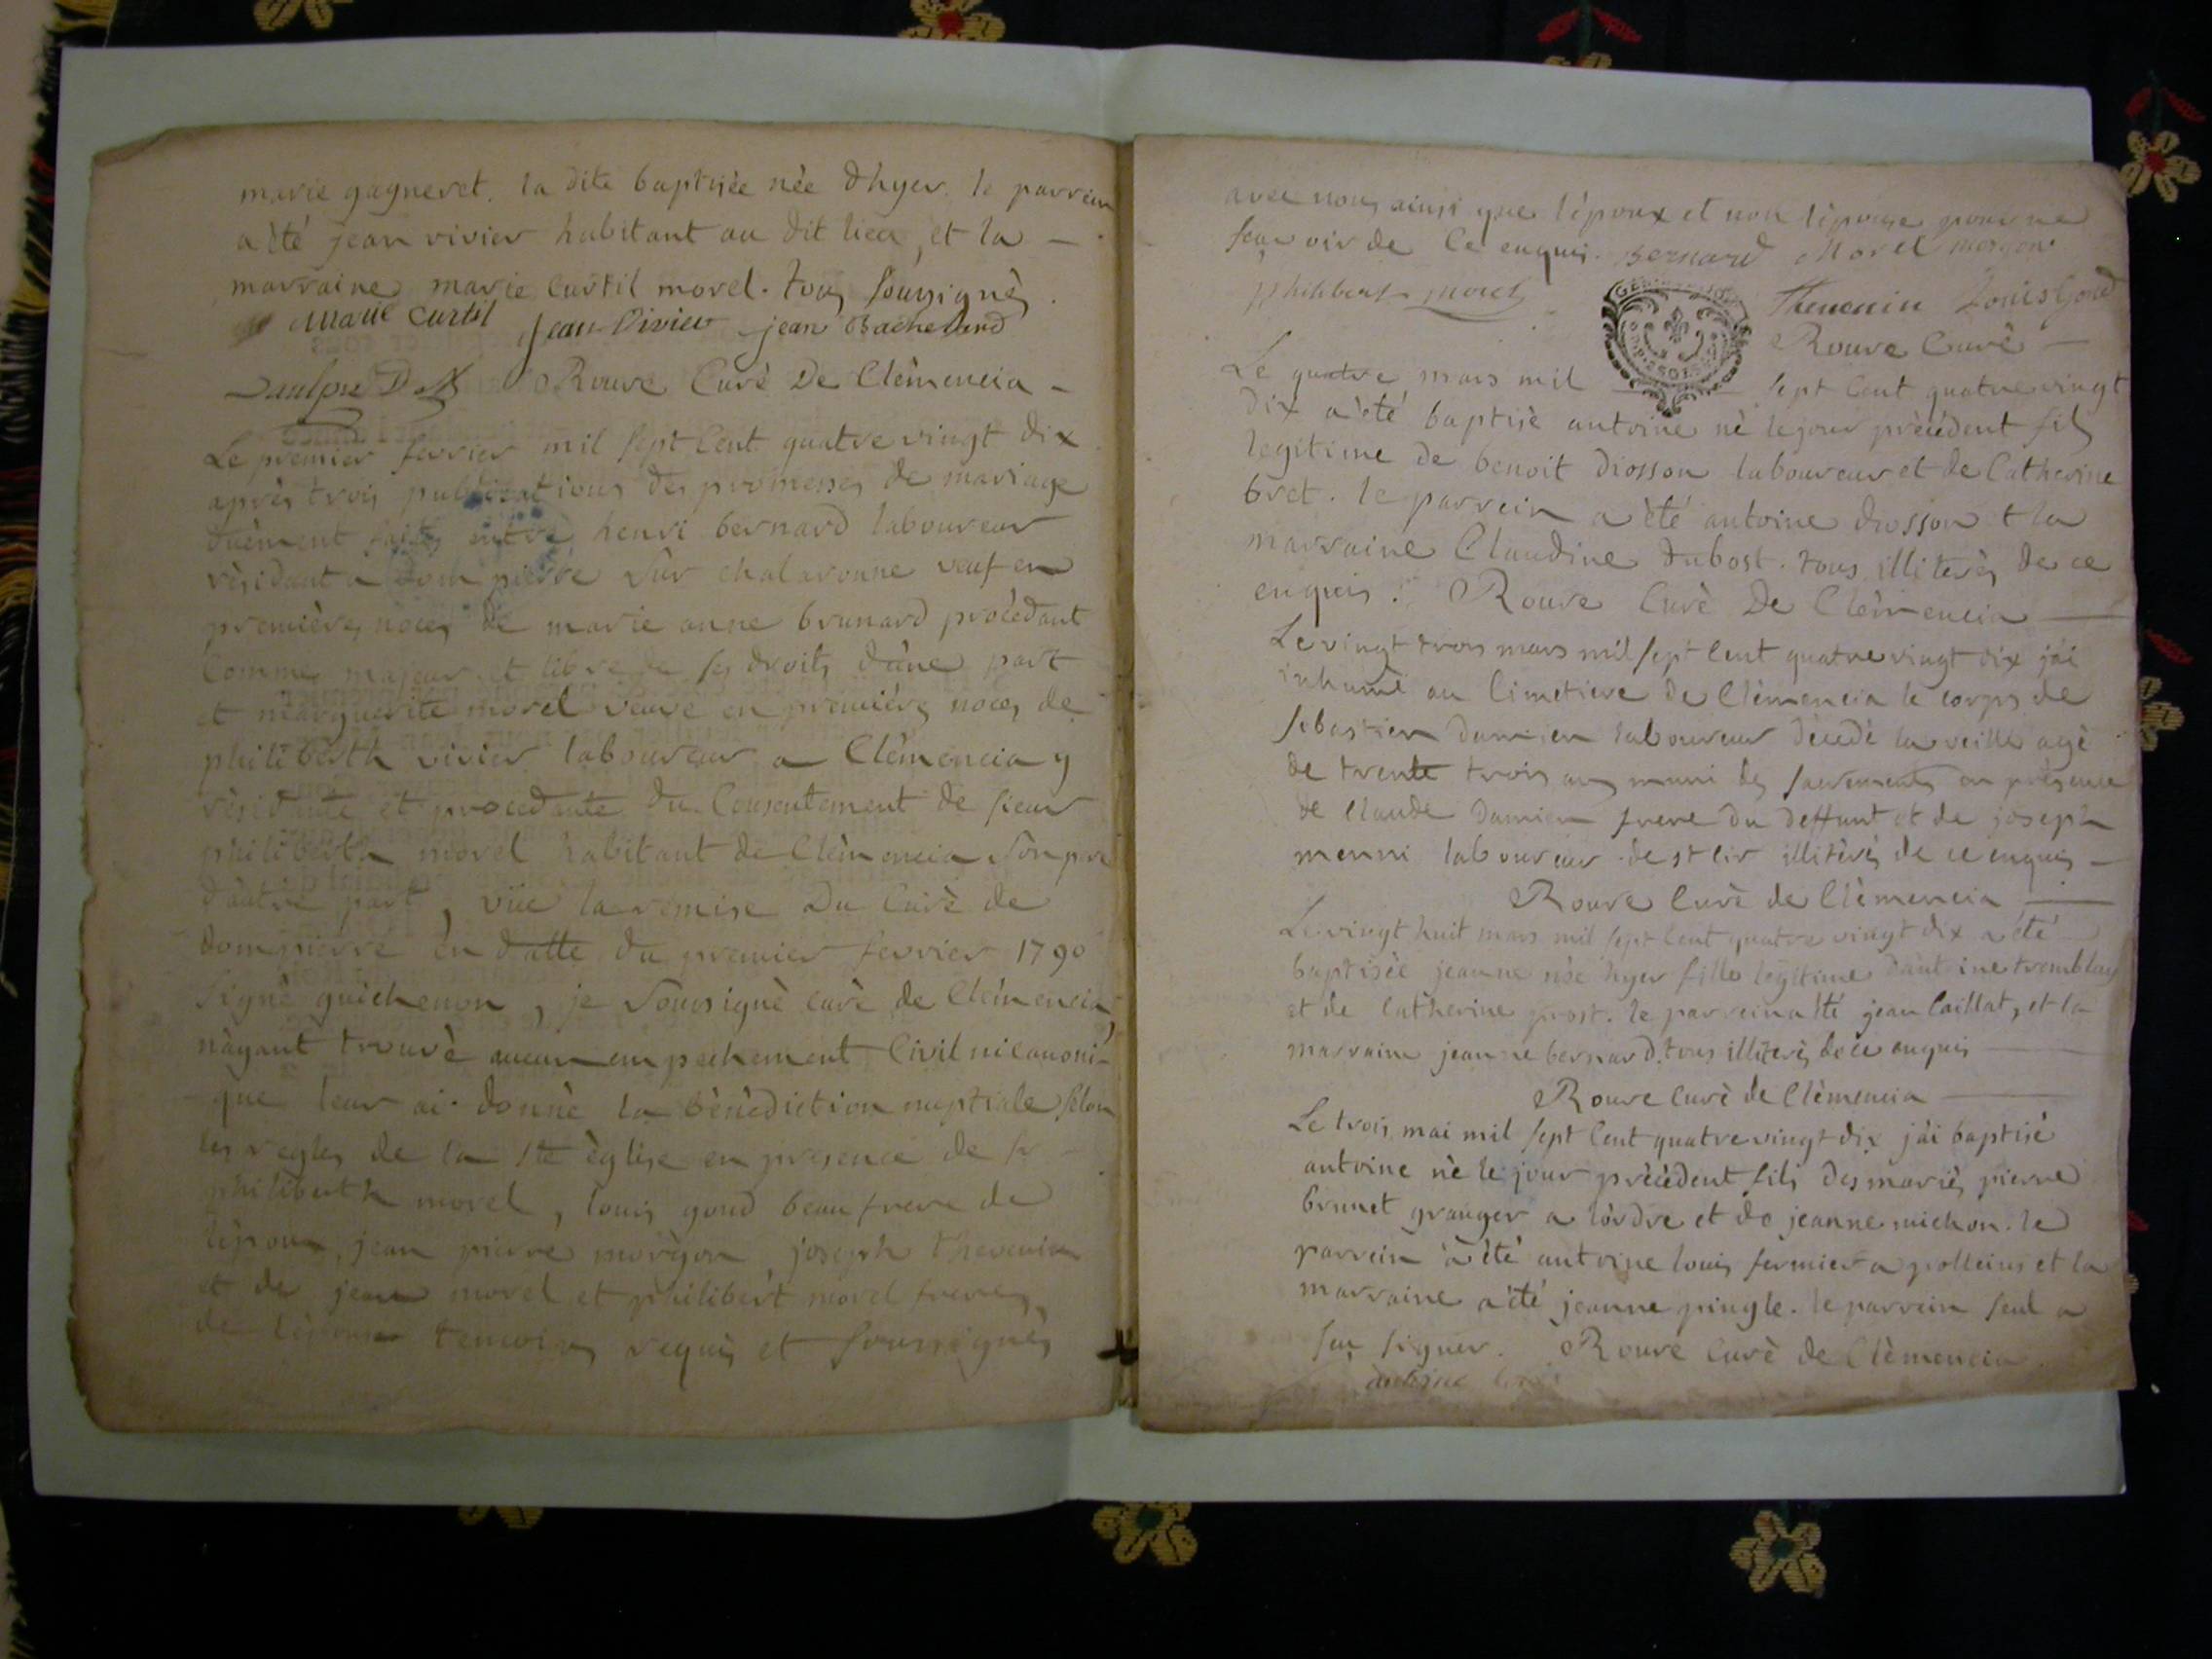 marie gagneret. la dite baptisée née d'hyer. le parrein
a été jean vivier habitant au dit lieu, et la –
marraine marie Curtil morel. tous soussignés.
Marie Curtil Jean Vivier jean Bachelard
Rouve Curé De Clémencia –
Le premier fevrier mil sept Cent quatre vingt dix
après trois publications des promesses de mariage
duëment faites entre henri bernard laboureur
résidant a Dom pierre sur chalaronne veuf en
premières noces de marie anne brunard procédant
Comme majeur et libre de ses droits d'une part
et marguerite morel veuve en premières noces de
philiberth vivier laboureur a Clémencia y
résidante et procedante du Consentement de sieur
philiberth morel habitant de Clémencia son pre
d'autre part, vüe la remise Du Curé de
dompierre en datte du premier fevrier 1790
signé guichenon, je soussigné curé de Clémencia
n'ayant trouvé aucun empechement Civil ni canoni-
que leur ai donné la bénédiction nuptiale selon
les regles de la ste église en presence de sr
philiberth morel, louis goud beau frere de
l'époux, jean pierre morgon, joseph thevenin
et de jean morel et philibert morel freres
de l'épouse temoins requis et soussignés
avec nous ainsi que l'époux et non l'épouse pour ne
sçavoir de Ce enquis. Bernard Morel morgon
philibert morel Thevenin Louis Goud
Rouve Curé –
Le quatre mars mil sept Cent quatre vingt
Dix a été baptisé antoine né le jour précédent fils
legitime de benoit Diosson laboureur et de Catherine
bret. le parrein a été antoine diosson & la
marraine Claudine dubost. tous illiterés de ce
enquis. Rouve Curé De Clémencia –
Le vingt trois mars mil sept Cent quatre vingt dix j'ai
inhumé au Cimetiere de Clémencia le corps de
sebastien damien laboureur décédé la veille agé
de trente trois ans muni des sacrements en présence
de Claude damien frere du deffunt et de joseph
menni laboureur de st cir illiterés de ce enquis –
Rouve Curé de Clémencia –
Le vingt huit mars mil sept Cent quatre vingt dix a été
baptisée jeanne née hyer fille legitime d'antoine tremblay
et de Catherine prost. le parrein a été jean Caillat, et la
marraine jeanne bernard. tous illiterés de ce enquis –
Rouve Curé de Clémencia –
Le trois mai mil sept Cent quatre vingt dix j'ai baptisé
antoine né le jour précédent fils des mariés pierre
brunet granger a l'ordre et de jeanne michon. le
parrein a été antoine louis fermier a polleins et la
marraine a été jeanne pingle. le parrein seul a
sçu signer. Rouve Curé de Clémencia.
antoine louis